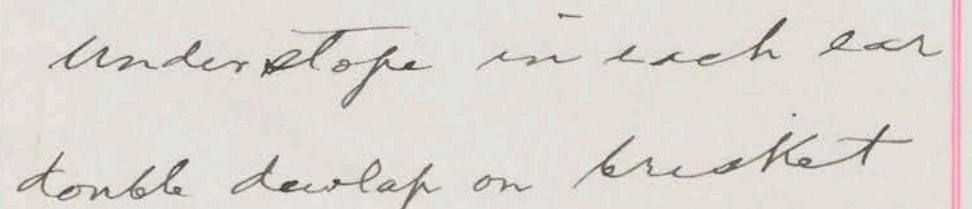 Understope in each ear
double dewlap on brisket